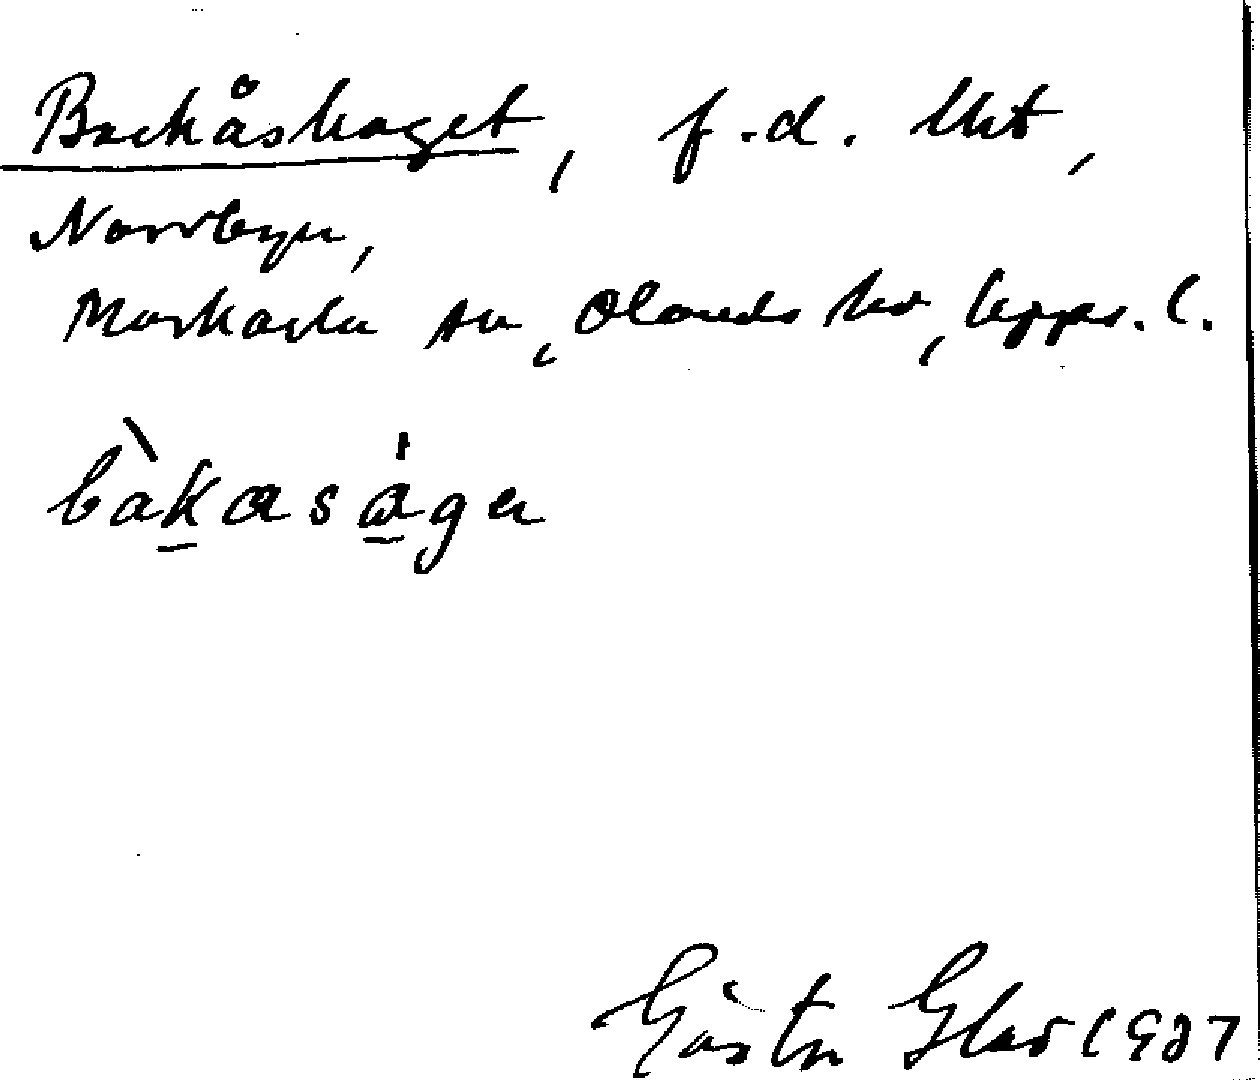 Backåshaget, f.d. lht,
Norrbyn,
Morkarla sn, Olands hd, Upps. l.
bàkasága
Gösta Glad 1937